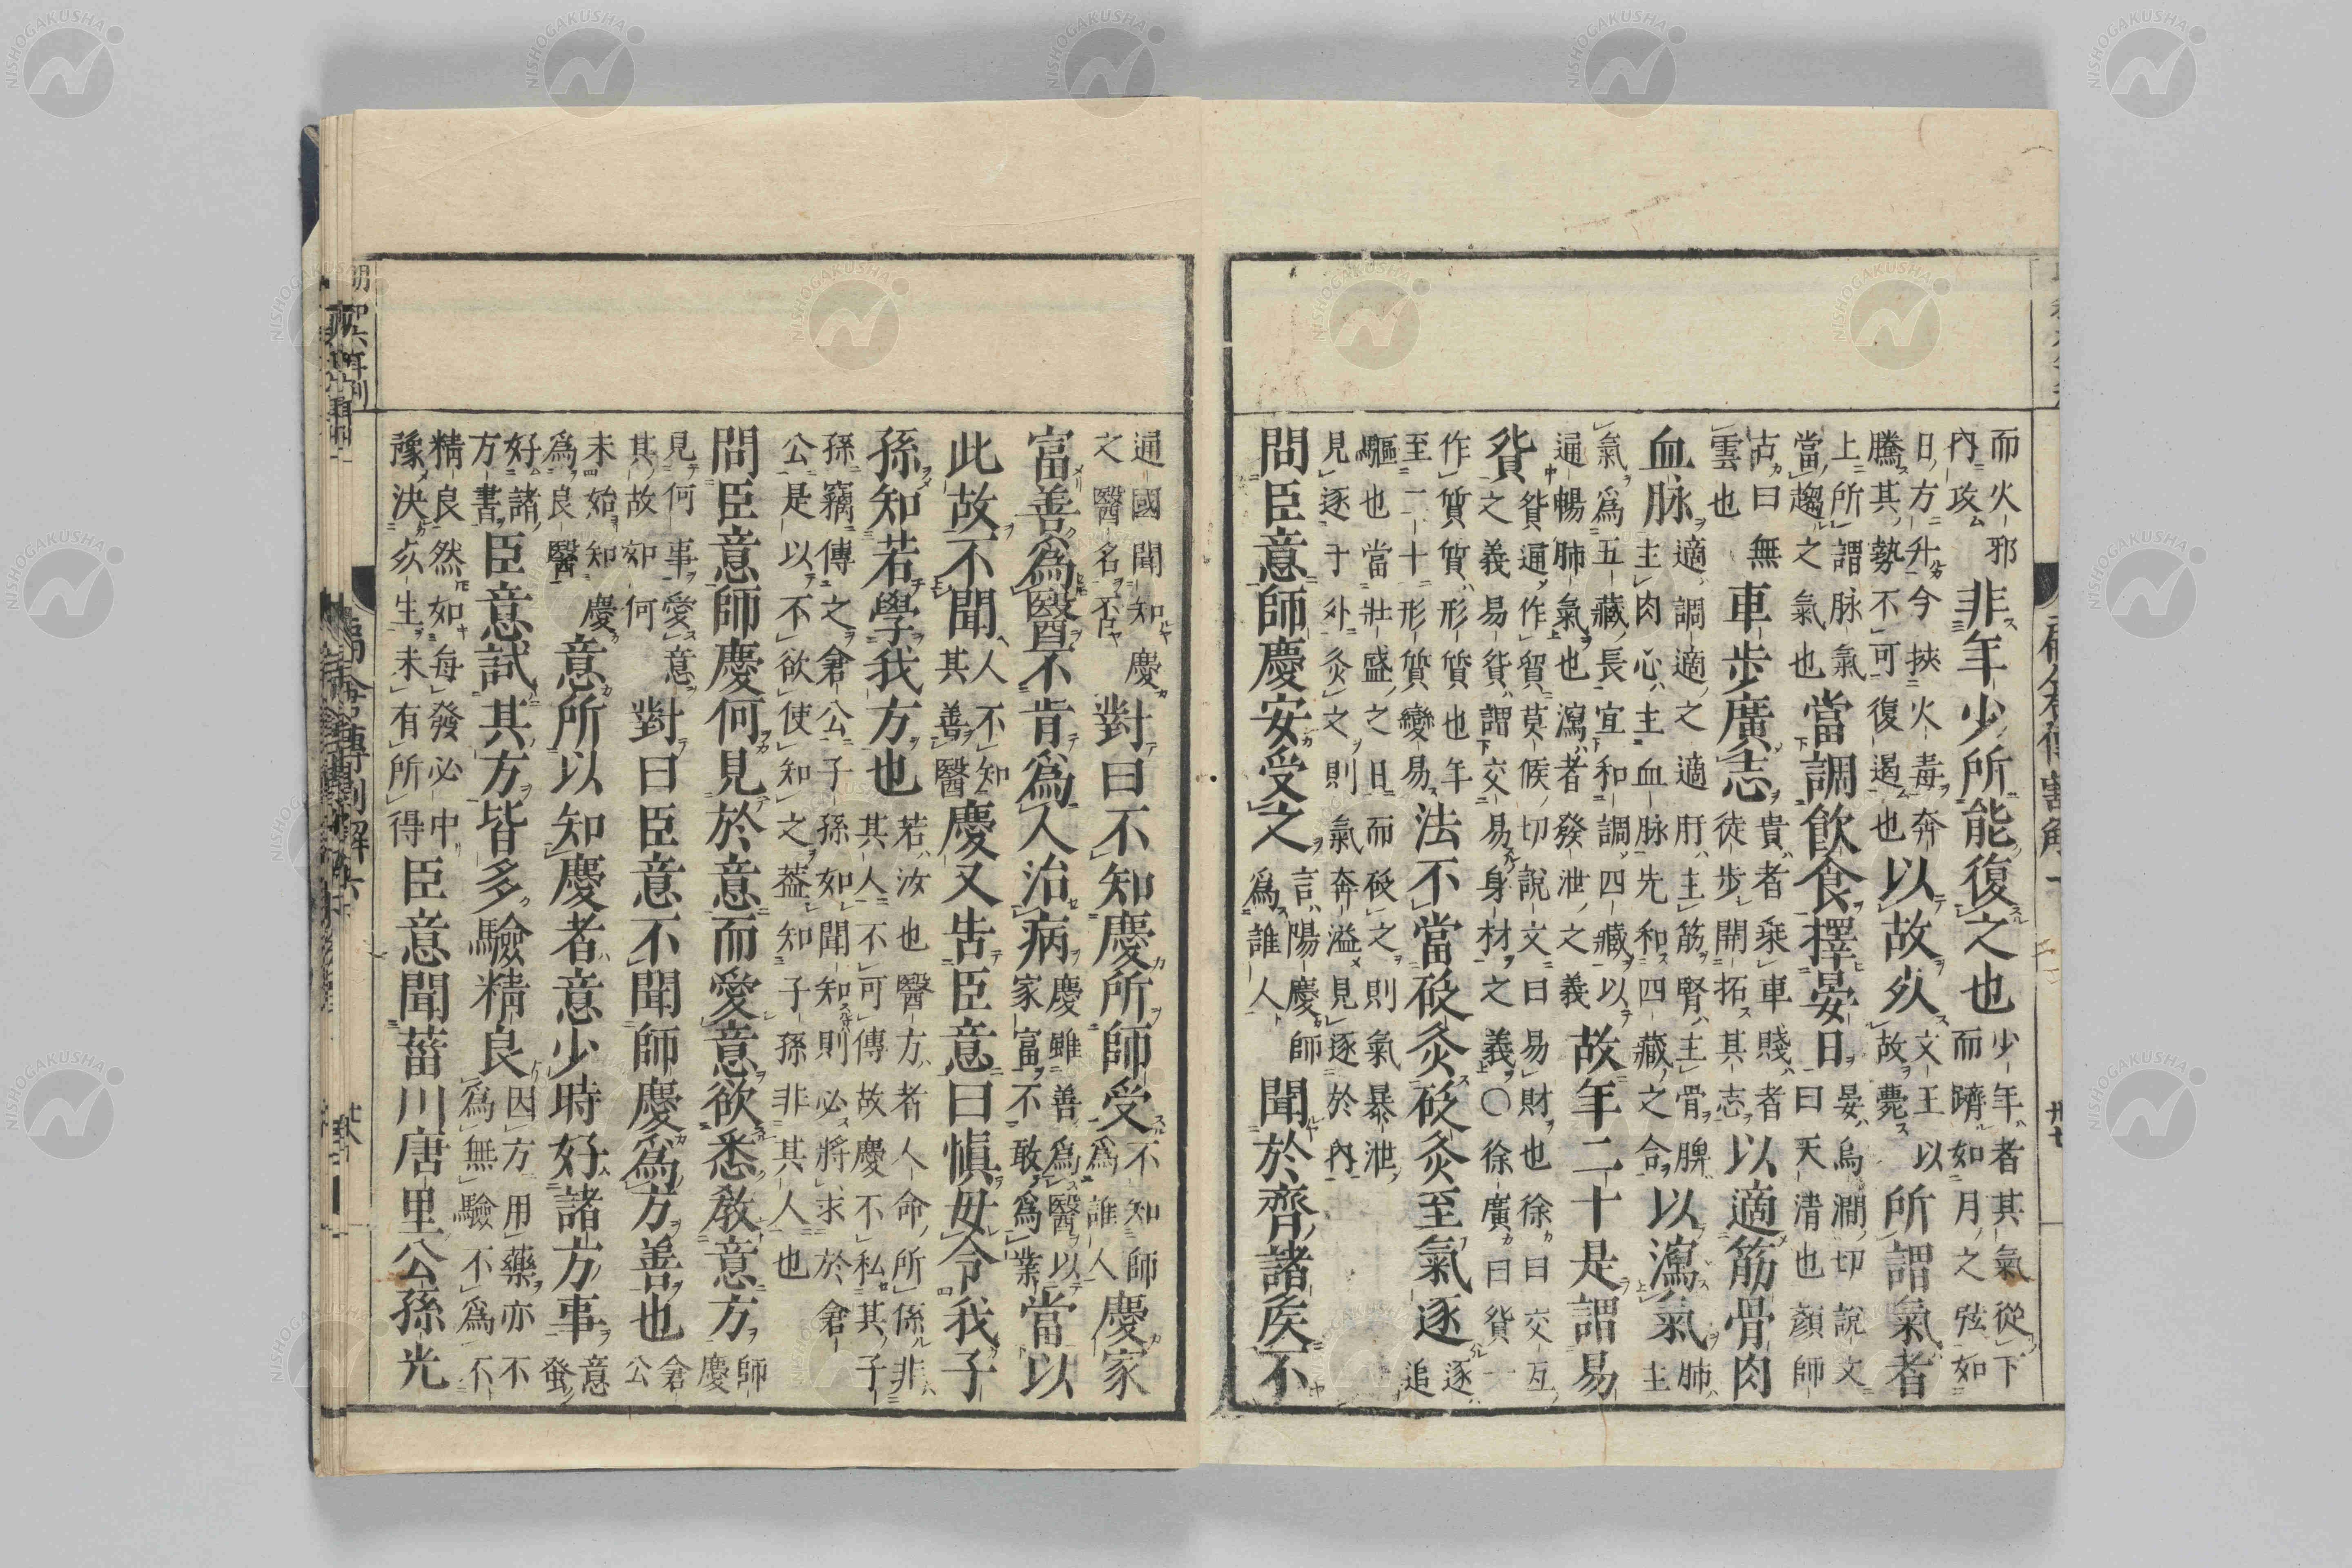 而火邪內攻非年少所能復之也少年者其氣從下而躋如月之弦如
日方升今挾火毒奔騰其勢不可復遏也以故死文王以故薨所謂氣者
上所謂脉氣當趨之氣也當調飮食擇晏日晏烏澗切說文曰天清也顏師
古曰無雲也車步廣志貴者乘車賤者徒步開拓其志以適筋骨肉
血脉適調適之適肝主筋腎主骨脾主肉心主血脉先和四藏之合以瀉氣肺主
氣爲五藏長宜和調四藏以通暢肺氣也瀉者發泄之義故年二十是謂易
貨貨通作貿莫候切說文曰易財也徐曰交互之義易貨謂交易身材之義○徐廣曰貨一
作質質形質也年至二十形質變易法不當砭灸砭灸至氣逐逐追
驅也當壯盛之日而砭之則氣暴泄見逐于外灸之則氣奔溢見逐於內
問臣意師慶安受之言陽慶師爲誰人聞於齊諸矦不
通國聞知慶之醫名否對曰不知慶所師受不知師爲誰人慶家
富善爲醫不肯爲人治病慶雖善爲醫以家富不敢爲業當以
此故不聞人不知其善醫慶又告臣意曰愼毋令我子
孫知若學我方也若汝也醫方者人命所係非其人不可傳故慶不私其子
孫竊傳之倉公子孫如聞知則必將求於倉公是以不欲使知之葢知子孫非其人也
問臣意師慶何見於意而愛意欲悉敎意方師慶
見何事愛意其故如何對曰臣意不聞師慶爲方善也倉公
未始知慶爲良醫意所以知慶者意少時好諸方事意蚤
好諸方書臣意試其方皆多驗精良因方用藥亦不爲無驗不爲不
精良然如每發必中豫決死生未有所得臣意聞菑川唐里公孫光